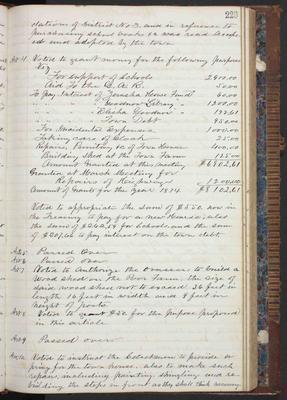 223
clations of District No 3 and in reference to
purchasing school books &c was read accept-
ed and adopted by the town
Art 4. Voted to grant money for the following purposes
Viz
For Support of Schools 2400.00
Aid to the G.A.R. 50.00
To pay Interest of Fund 60.00
" " " Goodnow Library 1300.00
" " " Goodnow
" " " Town Debt 950.00
For Incidental Expenses 1000.00
Taking care of Clock 25.00
Repairs, Furniture, &c of Town House 400.00
Building Shed at the Town Farm 125.00
Amount Granted at this meeting
Granted at March Meeting for
Repairs of Highway
Amount of Grants for the year
Voted to appropriate the sum of $550. now in
the Treasury to pay for a new Hearse; also
the sum of for Schools and the sum
of to pay interest on the town debt
Art 5. Passed Over
Art 6 Passed over
Art 7 Voted to Authorize the Overseers to build a
wood shed on the Poor Farm, the size of
said wood shed not to exceed 36 feet in
length 16 feet in width and 9 feet in
height of posts
Art 8 Voted to grant $50 for the purpose proposed
in this article
Art 9 Passed over
Voted to instruct the Selectmen to provide a
for the town house. also to make such
repairs, including painting, shingling, and re-
building the steps in front as they shall think necessary